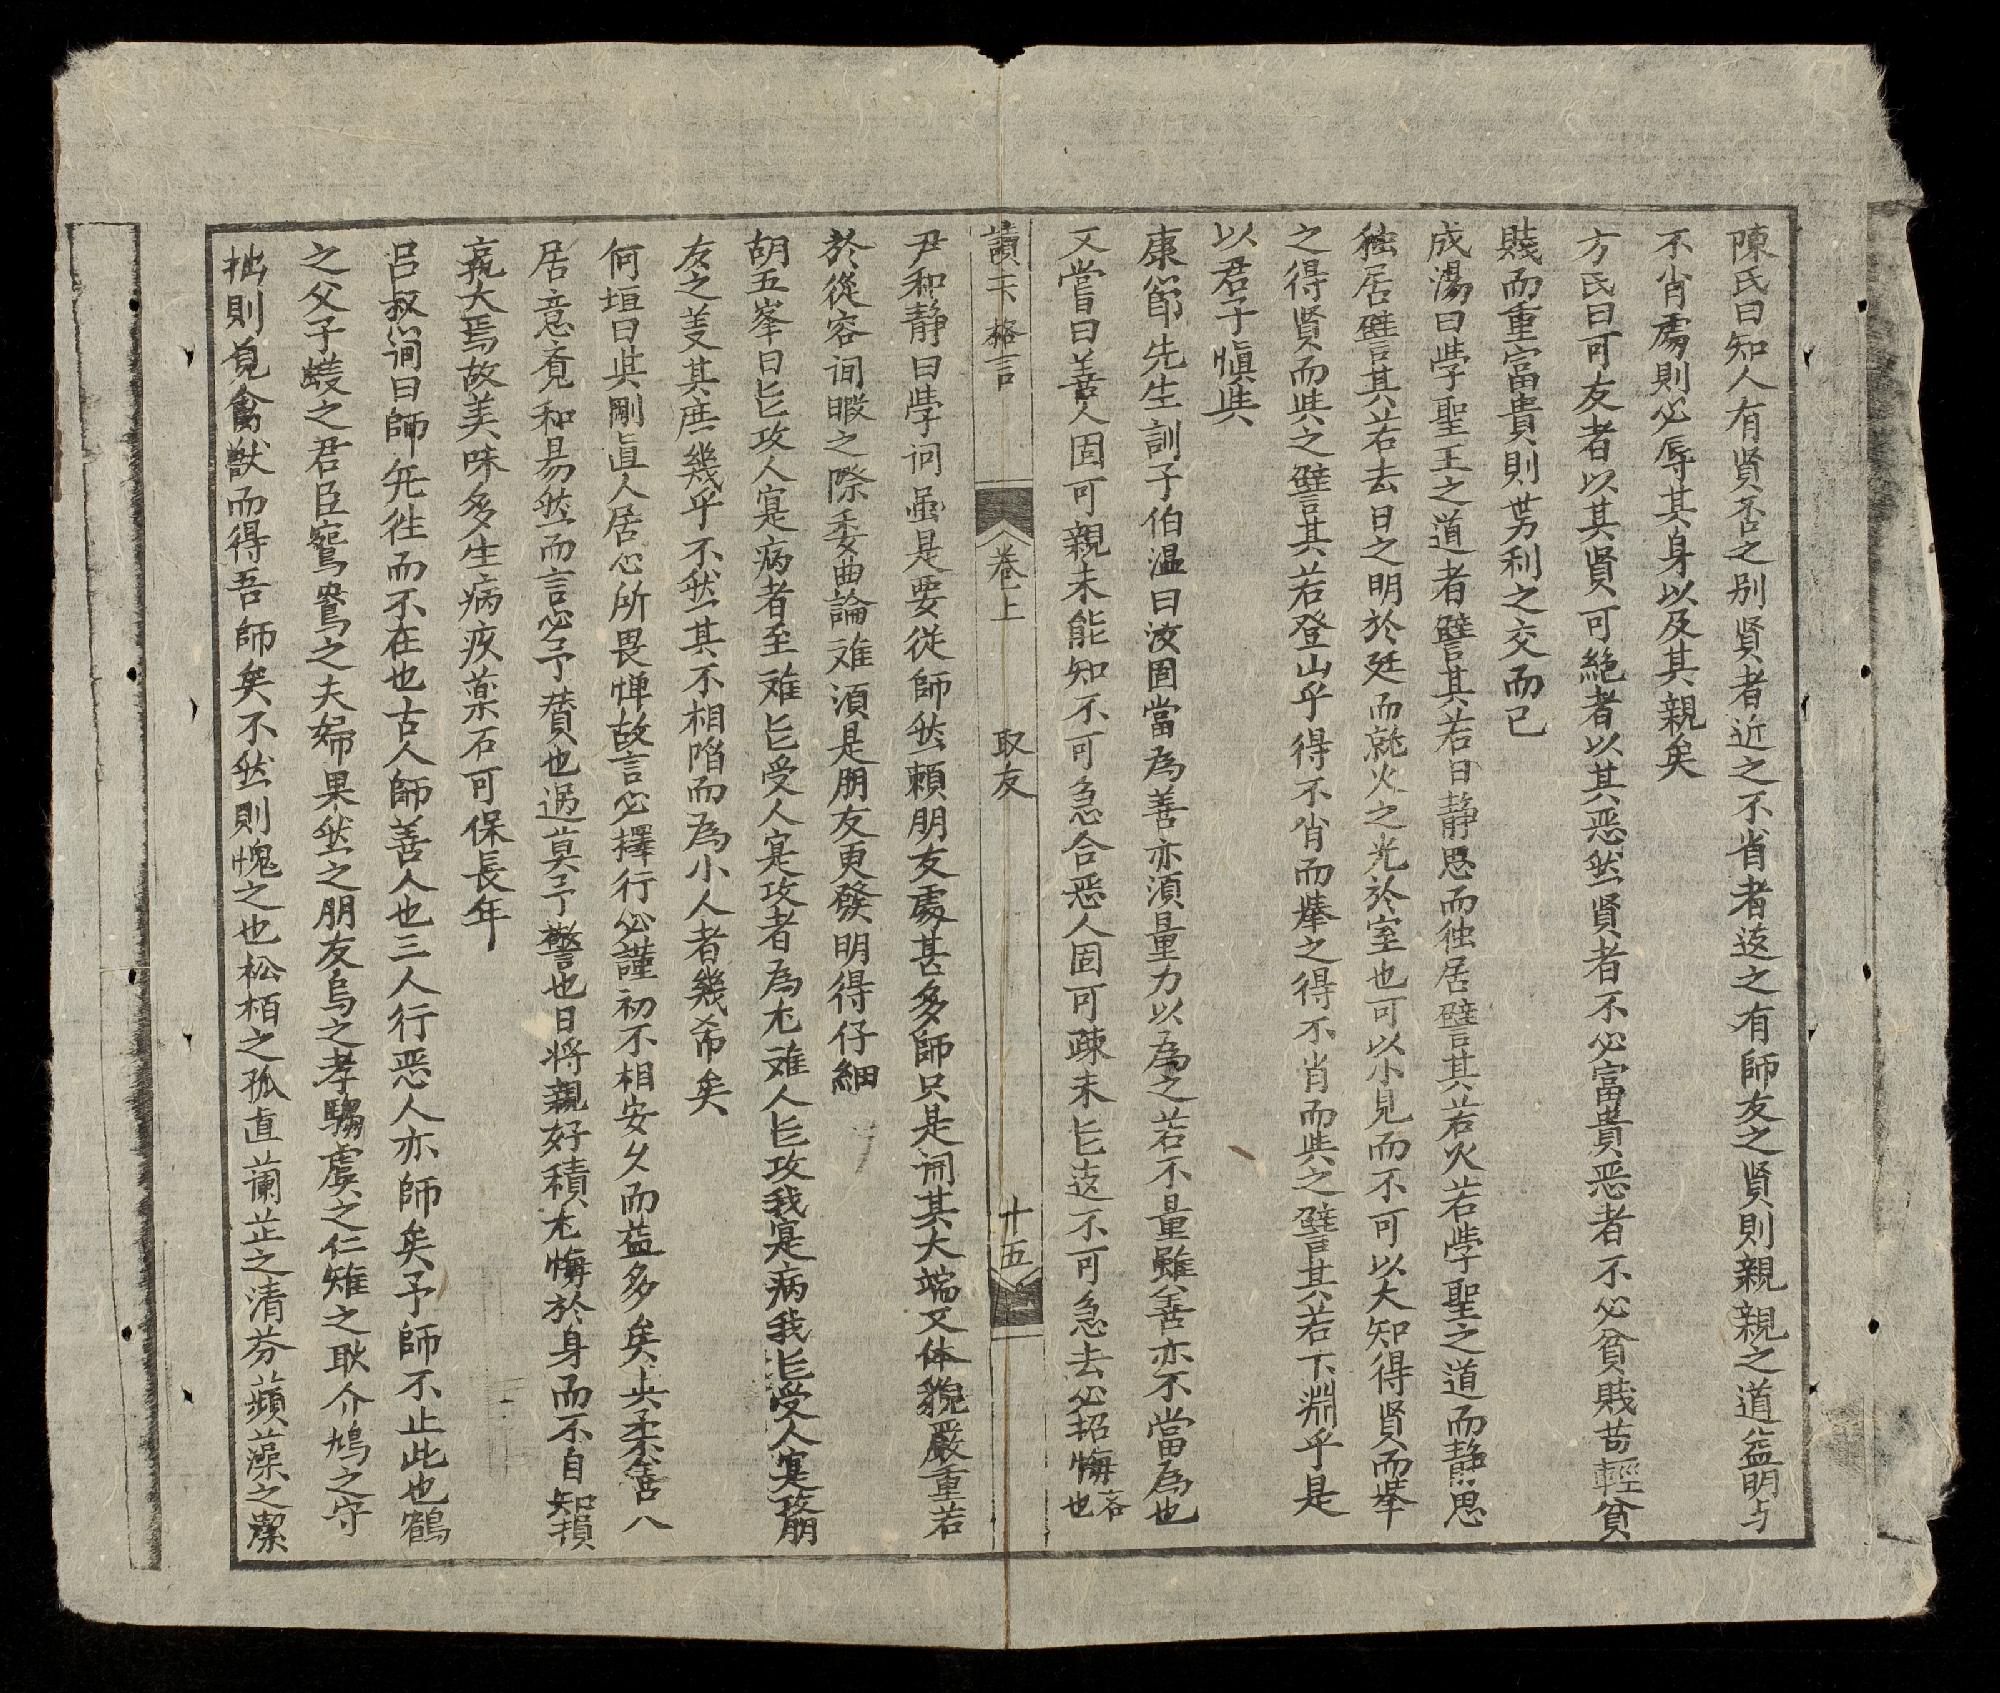 陳氏曰知人有贤否之别贤者近之不肖者逺之有師友之贤則親親之道益明与
不肖處則必辱其身以及其親矣
方氏曰可友者以其贤贤可絶者以其恶然贤者不必富貴恶者不必貧賎苟輕貧
賎而重富貴則势利之交而已
成湯曰学聖王之道者譬其若日静思而独居譬其若火若学聖之道而静思
独居譬其若去日之明於廷而就火之光於室也可以小見而不可以大知得贤而举
之得贤而与之譬其若登山乎得不肖而举之得不肖而与之譬其若下淵乎是
以君子慎与
康節先生訓子伯温曰汝固當為善亦湏量力以為之若不量雖善亦不當為也
又嘗曰善人固可親未能知不可急合恶人固可疎未能逺不可急去必招悔吝也
讀下格言 卷上 取友 十五
尹和静曰学问虽是要従師然頼朋友處甚多師只是闻其大端又体貌嚴重若
於從容间暇之際委曲論难湏是朋友更發明得仔細
胡五峯曰能攻人寔病者至难能受人寔攻者為尤难人能攻我寔病我能受人寔攻朋
友之義其庶幾乎不然其不相陷而為小人者幾希矣
何垣曰与剛直人居心所畏惮故言必擇行必謹初不相安久而益多矣与柔善人
居意覚和易然而言必予賛也過莫予警也日将親好積尤悔於身而不自知損
孰大焉故美味多生病疾藥石可保長年
吕叔简曰師旡徃而不在也古人師善人也三人行恶人亦師矣予師不止此也鶴
之父子蟻之君臣鴛鴦之夫婦果然之朋友烏之孝騶虞之仁雉之耿介鳩之守
拙則見禽獸而得吾師矣不然則愧之也松栢之孤直蘭芷之清芬蘋藻之潔